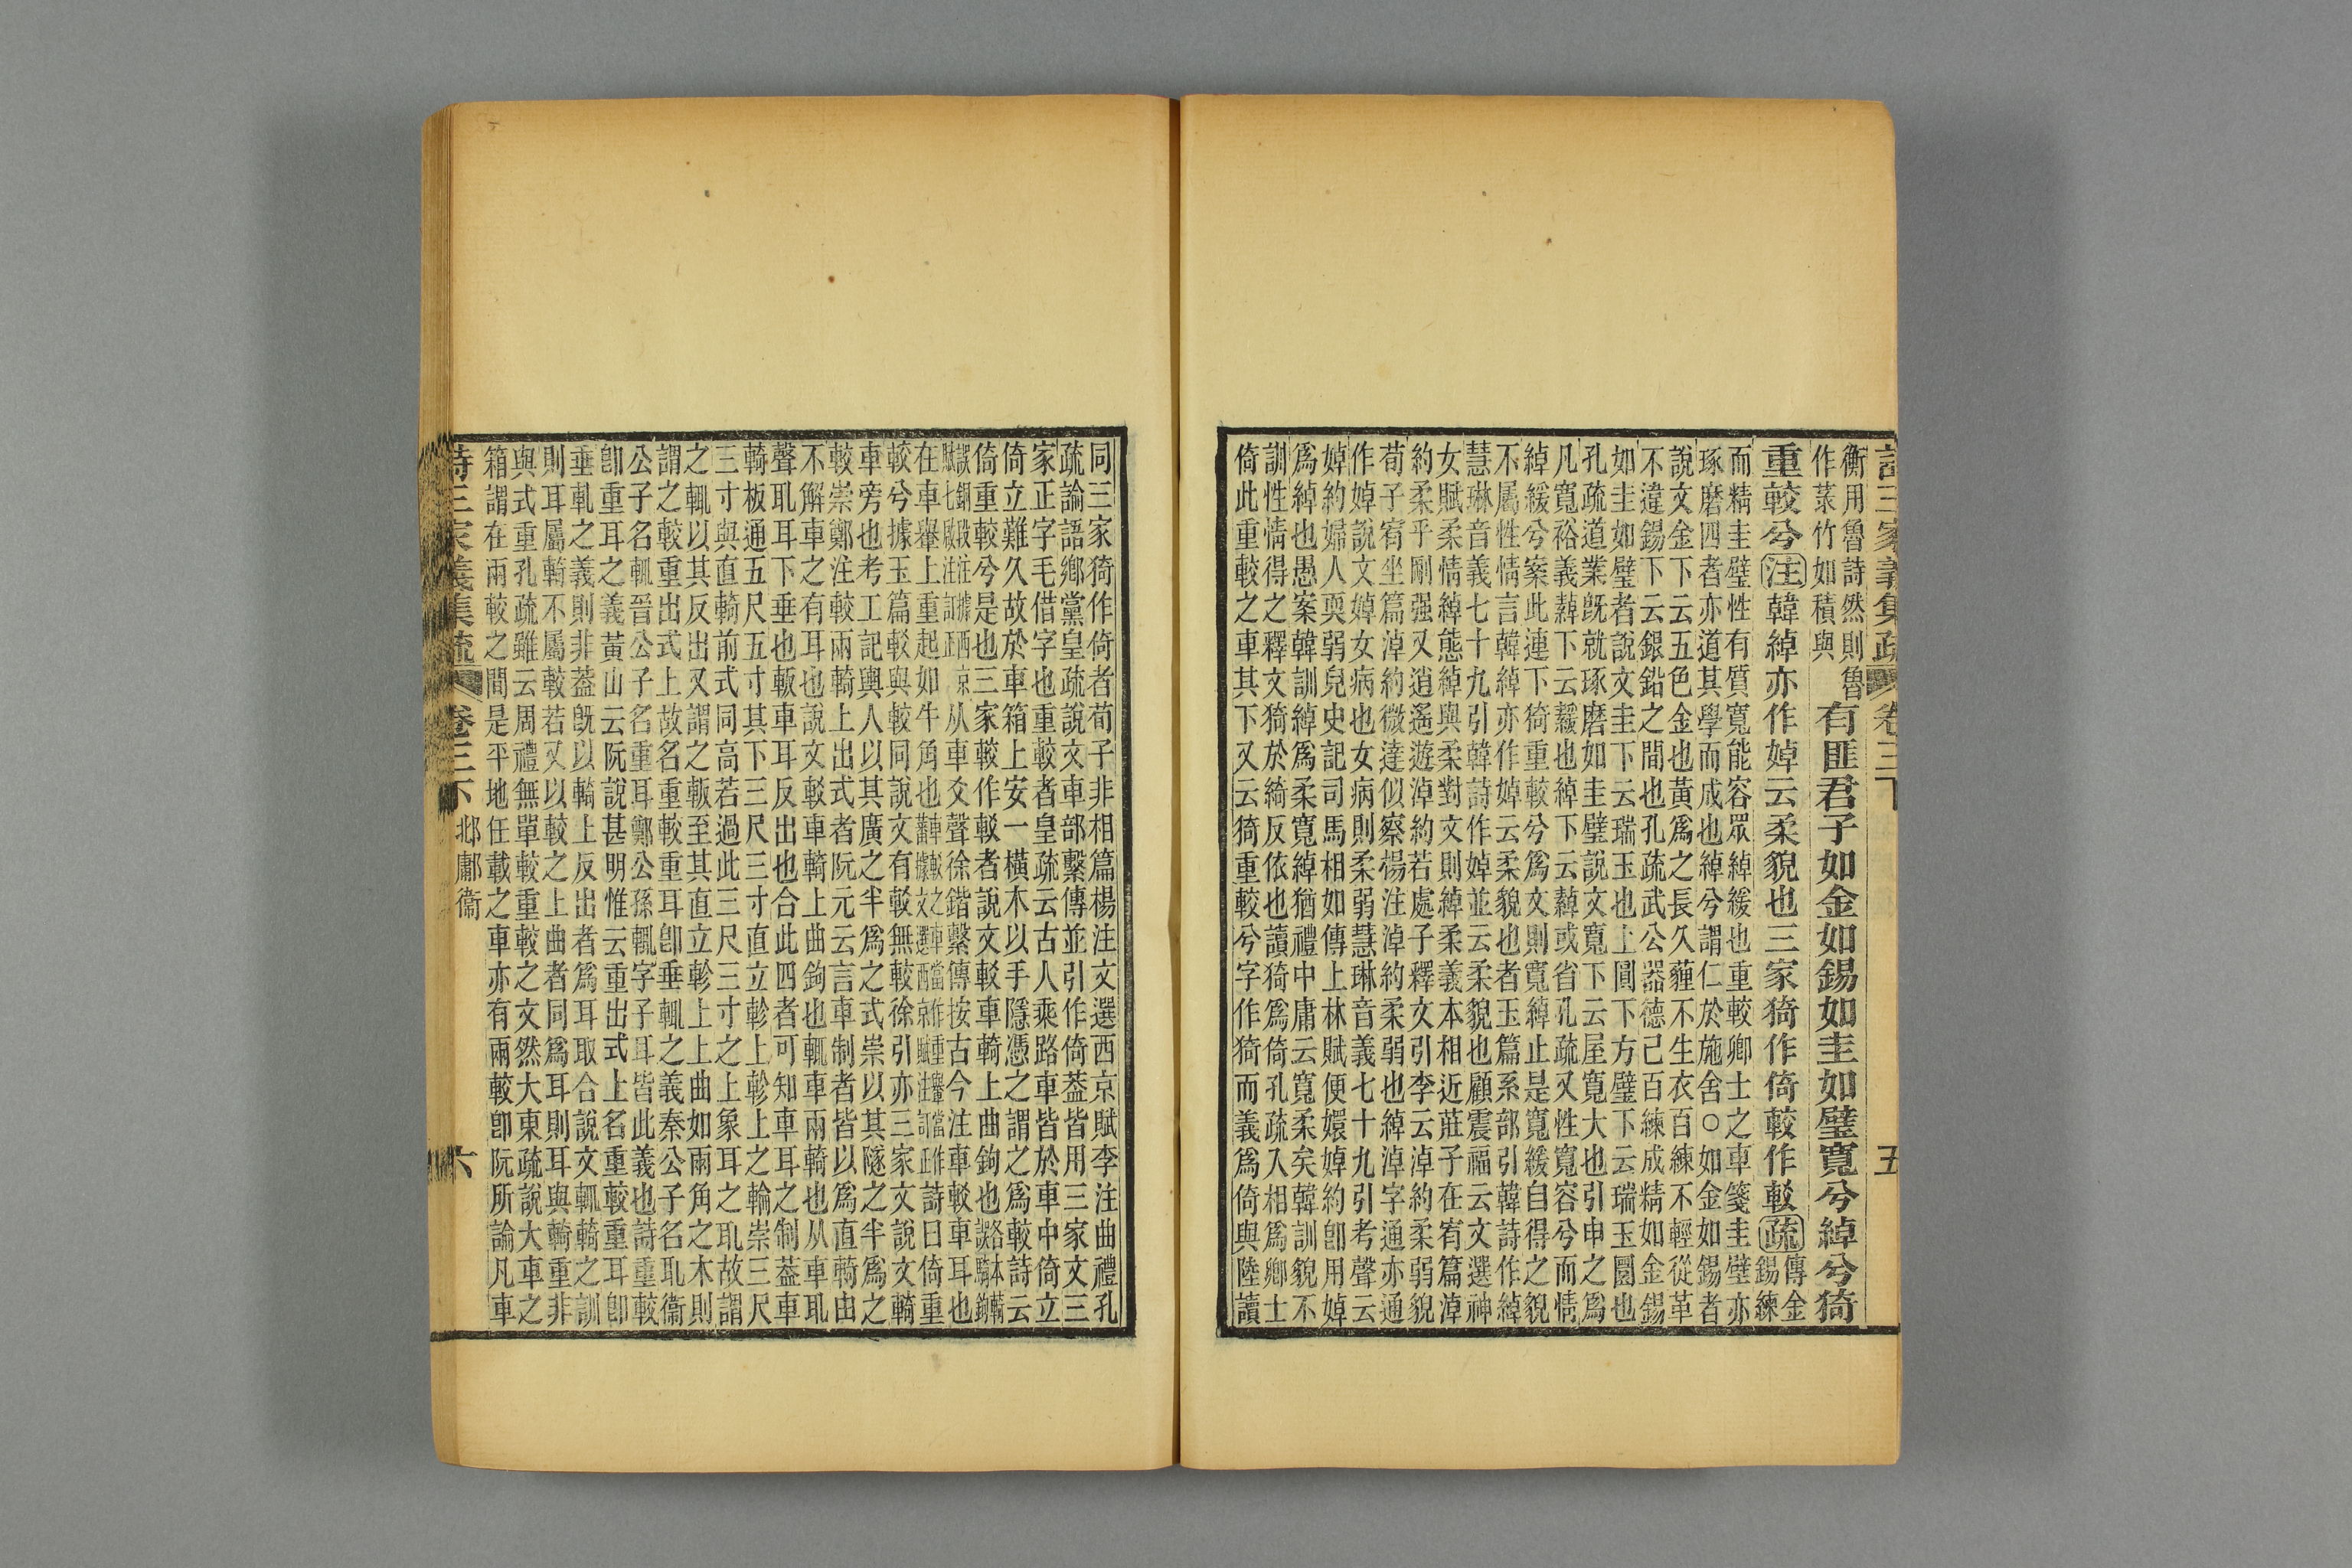 詩三家義集疏 卷三下 五
衡用魯詩然則魯
作菉竹如積與
有匪君子如金如錫如圭如璧寬兮綽兮猗
重較兮注韓綽亦作婥云柔貌也三家猗作倚較作䡈疏
傳金
錫練
而精圭璧性有質寬能容眾綽緩也重較卿士之車箋圭璧亦
琢磨四者亦道其學而成也綽兮謂仁於施舍○如金如錫者
說文金下云五色金也黃為之長久薶不生衣百練不輕從革
不違錫下云銀鉛之間也孔疏武公器德己百練成精如金錫
如圭如璧者說文圭下云瑞玉也上圓下方璧下云瑞玉圜也
孔疏道業既就琢磨如圭璧說文寬下云屋寬大也引申之為
凡寬裕義繛下云䋎也綽下云繛或省孔疏又性寬容兮而情
綽緩兮案此連下猗重較兮為文則寬綽止是寬緩自得之貌
不屬性情言韓綽亦作婥云柔貌也者玉篇系部引韓詩作綽
慧琳音義七十九引韓詩作婥並云柔貌也顧震福云文選神
女賦柔情綽態綽與柔對文則綽柔義本相近莊子在宥篇淖
約柔乎剛强又逍遙遊淖約若處子釋文引李云淖約柔弱貌
荀子宥坐篇淖約微達似察楊注淖約柔弱也綽淖字通亦通
作婥說文婥女病也女病則柔弱慧琳音義七十九引考聲云
婥約婦人耎弱兒史記司馬相如傳上林賦便嬛婥約即用婥
為綽也愚案韓訓綽為柔寬綽猶禮中庸云寬柔矣韓訓貌不
訓性情得之釋文猗於綺反依也讀猗為倚孔疏入相為卿士
倚此重較之車其下又云猗重較兮字作猗而義為倚與陸讀
同三家猗作倚者荀子非相篇楊注文選西京賦李注曲禮孔
疏論語鄉黨皇疏說文車部繫傳並引作倚葢皆用三家文三
家正字毛借字也重較者皇疏云古人乘路車皆於車中倚立
倚立難久故於車箱上安一橫木以手隱憑之謂之為較詩云
倚重較兮是也三家較作䡈者說文䡈車輢上曲鉤也
誤銅段注據西京
賦七啟注訂正
从車爻聲徐鍇繫傳按古今注車䡈車耳也
在車轝上重起如牛角也
詩曰倚重
較兮據玉篇䡈與較同說文有䡈無較徐引亦三家文說文輢
車旁也考工記輿人以其廣之半為之式崇以其隧之半為之
較崇鄭注較兩輢上出式者阮元云言車制者皆以為直輢由
不解車之有耳也說文䡈車輢上曲鉤也輒車兩輢也从車耴
聲耴耳下垂也𨊻車耳反出也合此四者可知車耳之制葢車
輢板通五尺五寸其下三尺三寸直立軫上軫上之輪崇三尺
三寸與直輢前式同高若過此三尺三寸之上象耳之耴故謂
之輒以其反出又謂之𨊻至其直立軫上上曲如兩角之木則
謂之較重出式上故名重較重耳卽垂輒之義秦公子名耴衞
公子名輒晉公子名重耳鄭公孫輒字子耳皆此義也詩重較
卽重耳之義黃山云阮說甚明惟云重出式上名重較重耳卽
垂軏之義則非葢旣以輢上反出者為耳取合說文輒輢之訓
則耳屬輢不屬較若又以較之上曲者同為耳則耳與輢重非
與式重孔疏雖云周禮無單較重較之文然大東疏說大車之
箱謂在兩較之間是平地任載之車亦有兩較卽阮所論凡車
詩三家義集疏 卷三下 邶鄘衞 六